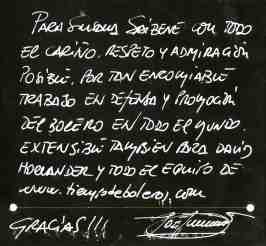 PARA SUSANA SCIBENE CON TODO
EL CARIÑO, RESPETO Y ADMIRACIÓN
POSIBLE, POR TAN ENCOMIABLE
TRABAJO EN DEFENSA Y PROMOCIÓN
DEL BOLERO EN TODO EL MUNDO.
EXTENSIBLE TAMBIEN PARA DAVID
HOLLANDER Y TODO EL EQUIPO DE
www.tiempodebolero.com
GRACIAS!!!